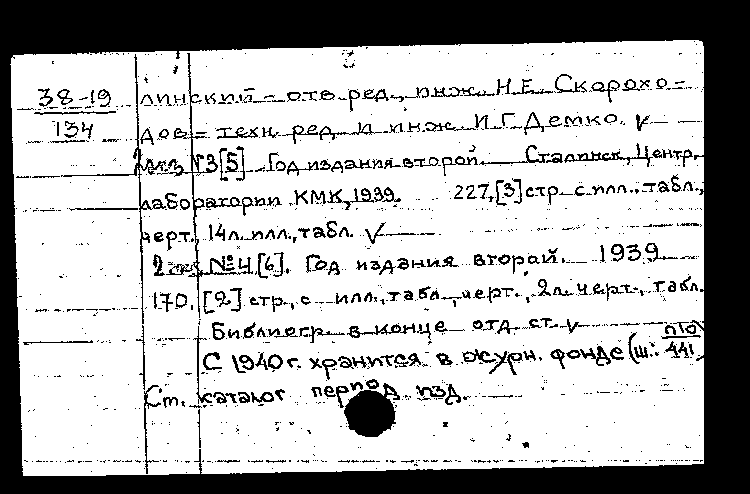 38-19
134
линский – отв. ред., инж. Н.Е. Скорохо-
дов – техн. ред. и инж. И.Г. Демко. v
2 экз. №3[5]. Год издания второй. Сталинск, Центр.
лаборатории КМК, 1939. 227,[3] стр. с илл., табл.,
черт. 14 л. илл., табл. v
2 экз. №4[6]. Год издания второй. 1939
170, [2] стр., с илл., табл., черт., 2 л. черт., табл.
Библиогр. в конце отд. ст. v
С 1940 г. хранится в журн. фонде (ш: П10/441)
См. каталог период. изд.